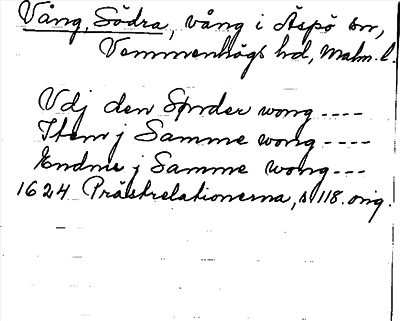 Vång, Södra, vång i Äspö sn,
Vemmenhögs hd, Malm. l.
Vdj den Sønder wong ----
Item j Samme wong ----
Endnu j Samme wong ---
1624 Prästrelationerna, s 118. orig.